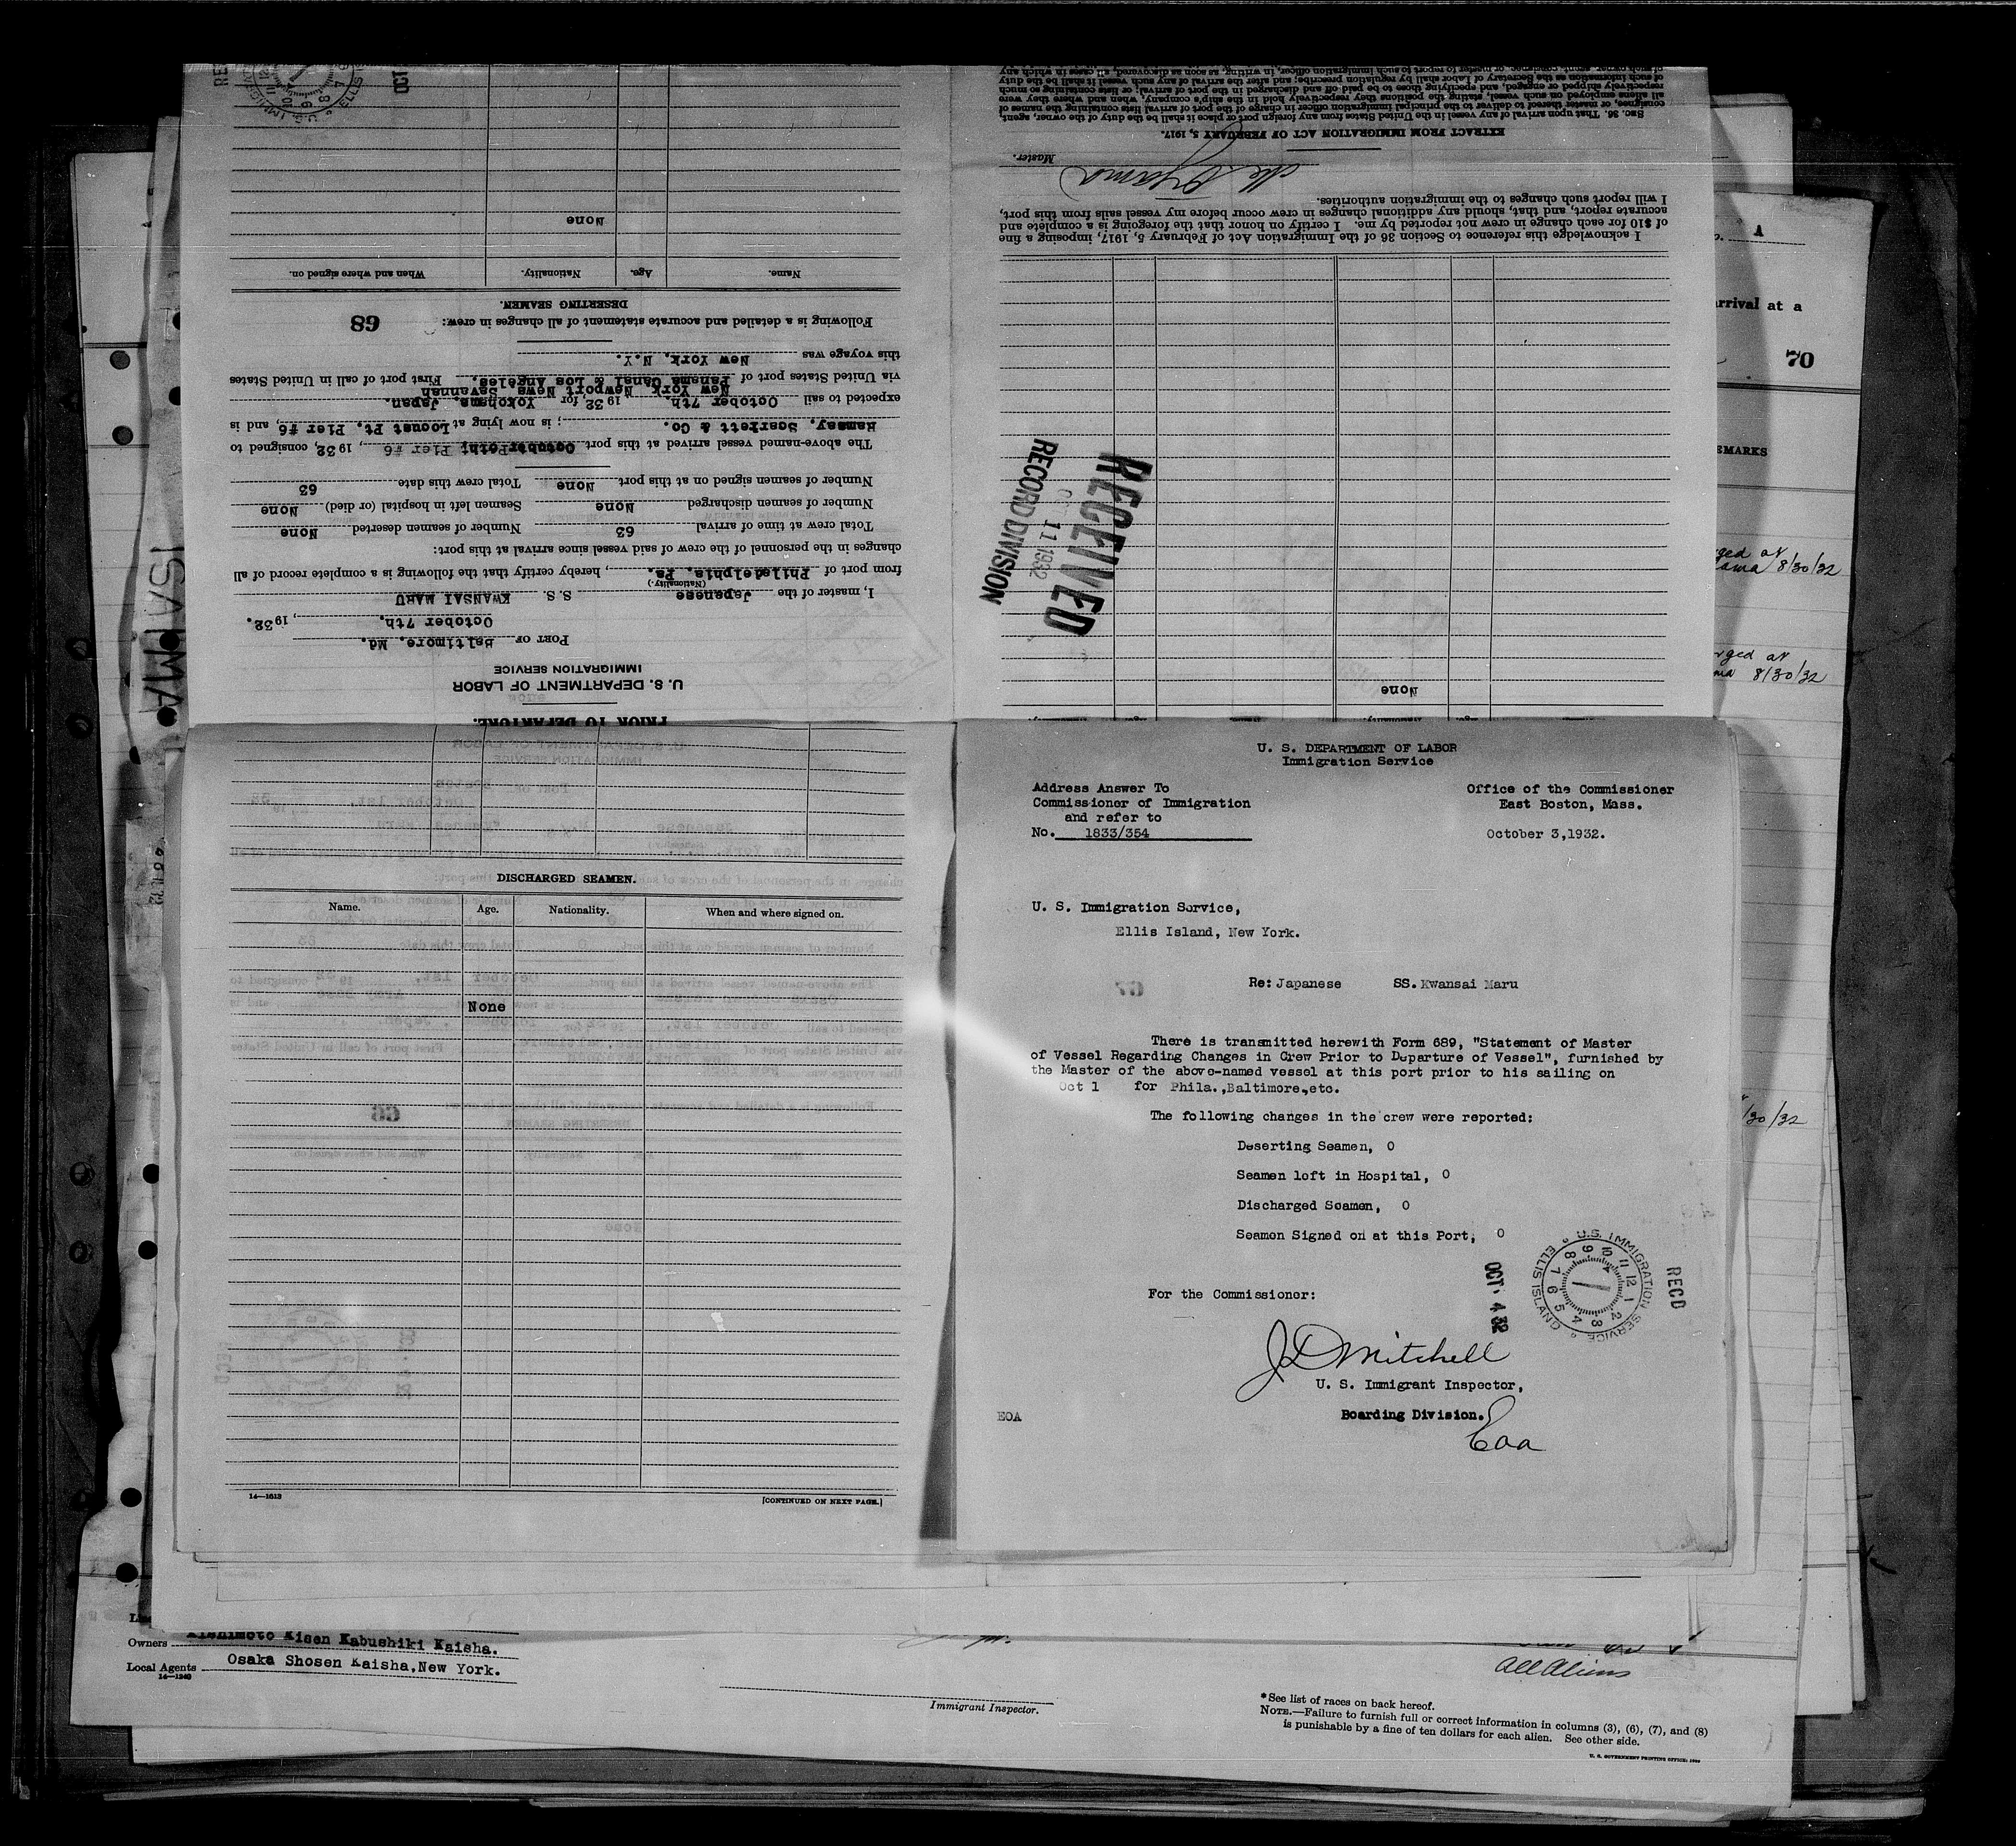 PRIOR TO DEPARTURE.
U. S. DEPARTMENT OF LABOR
IMMIGRATION SERVICE
PORT OF Baltimore, Md.
October 7th, 1932.
I, master of the Japanese S.S. KWANSAI MARU
(Nationality.)
from port of Philadelphia, Pa., hereby certify that the following is a complete record of all
changes in the personnel of the crew of said vessel since arrival at this port:
Total crew at time of arrival 63 Number of seamen deserted None
Number of seamen discharged None Seamen left in hospital (or died) None
Number of seamen signed on at this port None Total crew this date 63
The above-named vessel arrived at this port October Pier #6, 1932, consigned to
Ramsay, Scarlett & Co. ; is now lying at Locust Pt. Pier #6, and is
expected to sail October 7th, 1932, for Yokohama, Japan.
New York Newport News Savannah
via United States port of Panama Canal & Los Angeles. First port of call in United States
this voyage was New York, N.Y.
Following is a detailed and accurate statement of all changes in crew:
68
DESERTING SEAMEN.
Name. Age. Nationality. When and where signed on.
None
OCT
None
RECEIVED
11 1932
RECORD DIVISION
I acknowledge this reference to Section 36 of the Immigration Act of February 5, 1917, imposing a fine
of $10 for each change in crew not reported by me. I certify on honor that the foregoing is a complete and
accurate report, and that, should any additional changes in crew occur before my vessel sails from this port,
I will report such changes to the immigration authorities.
Master.
EXTRACT FROM IMMIGRATION ACT OF FEBRUARY 5, 1917.
SEC. 36. That upon arrival of any vessel in the United States from any foreign port or place it shall be the duty of the owner, agent,
consignee, or master thereof to deliver to the principal immigration officer in charge of the port of arrival lists containing the names of
all aliens employed on such vessel, stating the positions they respectively hold in the ship's company, when and where they were
respectively shipped or engaged, and specifying those to be paid off and discharged in the port of arrival; or lists containing so much
of such information as the Secretary of Labor shall by regulation prescribe; and after the arrival of any such vessel it shall be the duty
of such owner, agent, consignee, or master to report to such immigration officer, in writing, as soon as discovered, all cases in which any
DISCHARGED SEAMEN.
Name. Age. Nationality. When and where signed on.
None
14—1613
[CONTINUED ON NEXT PAGE.]
U. S. DEPARTMENT OF LABOR
Immigration Service
Address Answer To
Commissioner of Immigration
and refer to
No. 1833/354
Office of the Commissioner
East Boston, Mass.
October 3,1932.
U. S. Immigration Service,
Ellis Island, New York.
Re: Japanese SS. Kwansai Maru
There is transmitted herewith Form 689, "Statement of Master
of Vessel Regarding Changes in Crew Prior to Departure of Vessel", furnished by
the Master of the above-named vessel at this port prior to his sailing on
Oct 1 for Phila.,Baltimore,etc.
The following changes in the crew were reported:
Deserting Seamen, 0
Seamen left in Hospital, 0
Discharged Seamen, 0
Seamen Signed on at this Port, 0
For the Commissioner:
JD Mitchell
U. S. Immigrant Inspector,
Boarding Division.
Eoa
EOA
RECD
OCT 4 32
U.S. IMMIGRATION SERVICE
ELLIS ISLAND
1
arrival at a
70
EMARKS
8/30/32
8/30/32
/30/32
Owners Kishimoto Kisen Kabushiki Kaisha.
Local Agents Osaka Shosen Kaisha,New York.
14—1240
Immigrant Inspector.
All Aliens
*See list of races on back hereof.
NOTE.—Failure to furnish full or correct information in columns (3), (6), (7), and (8)
is punishable by a fine of ten dollars for each alien. See other side.
U. S. GOVERNMENT PRINTING OFFICE: